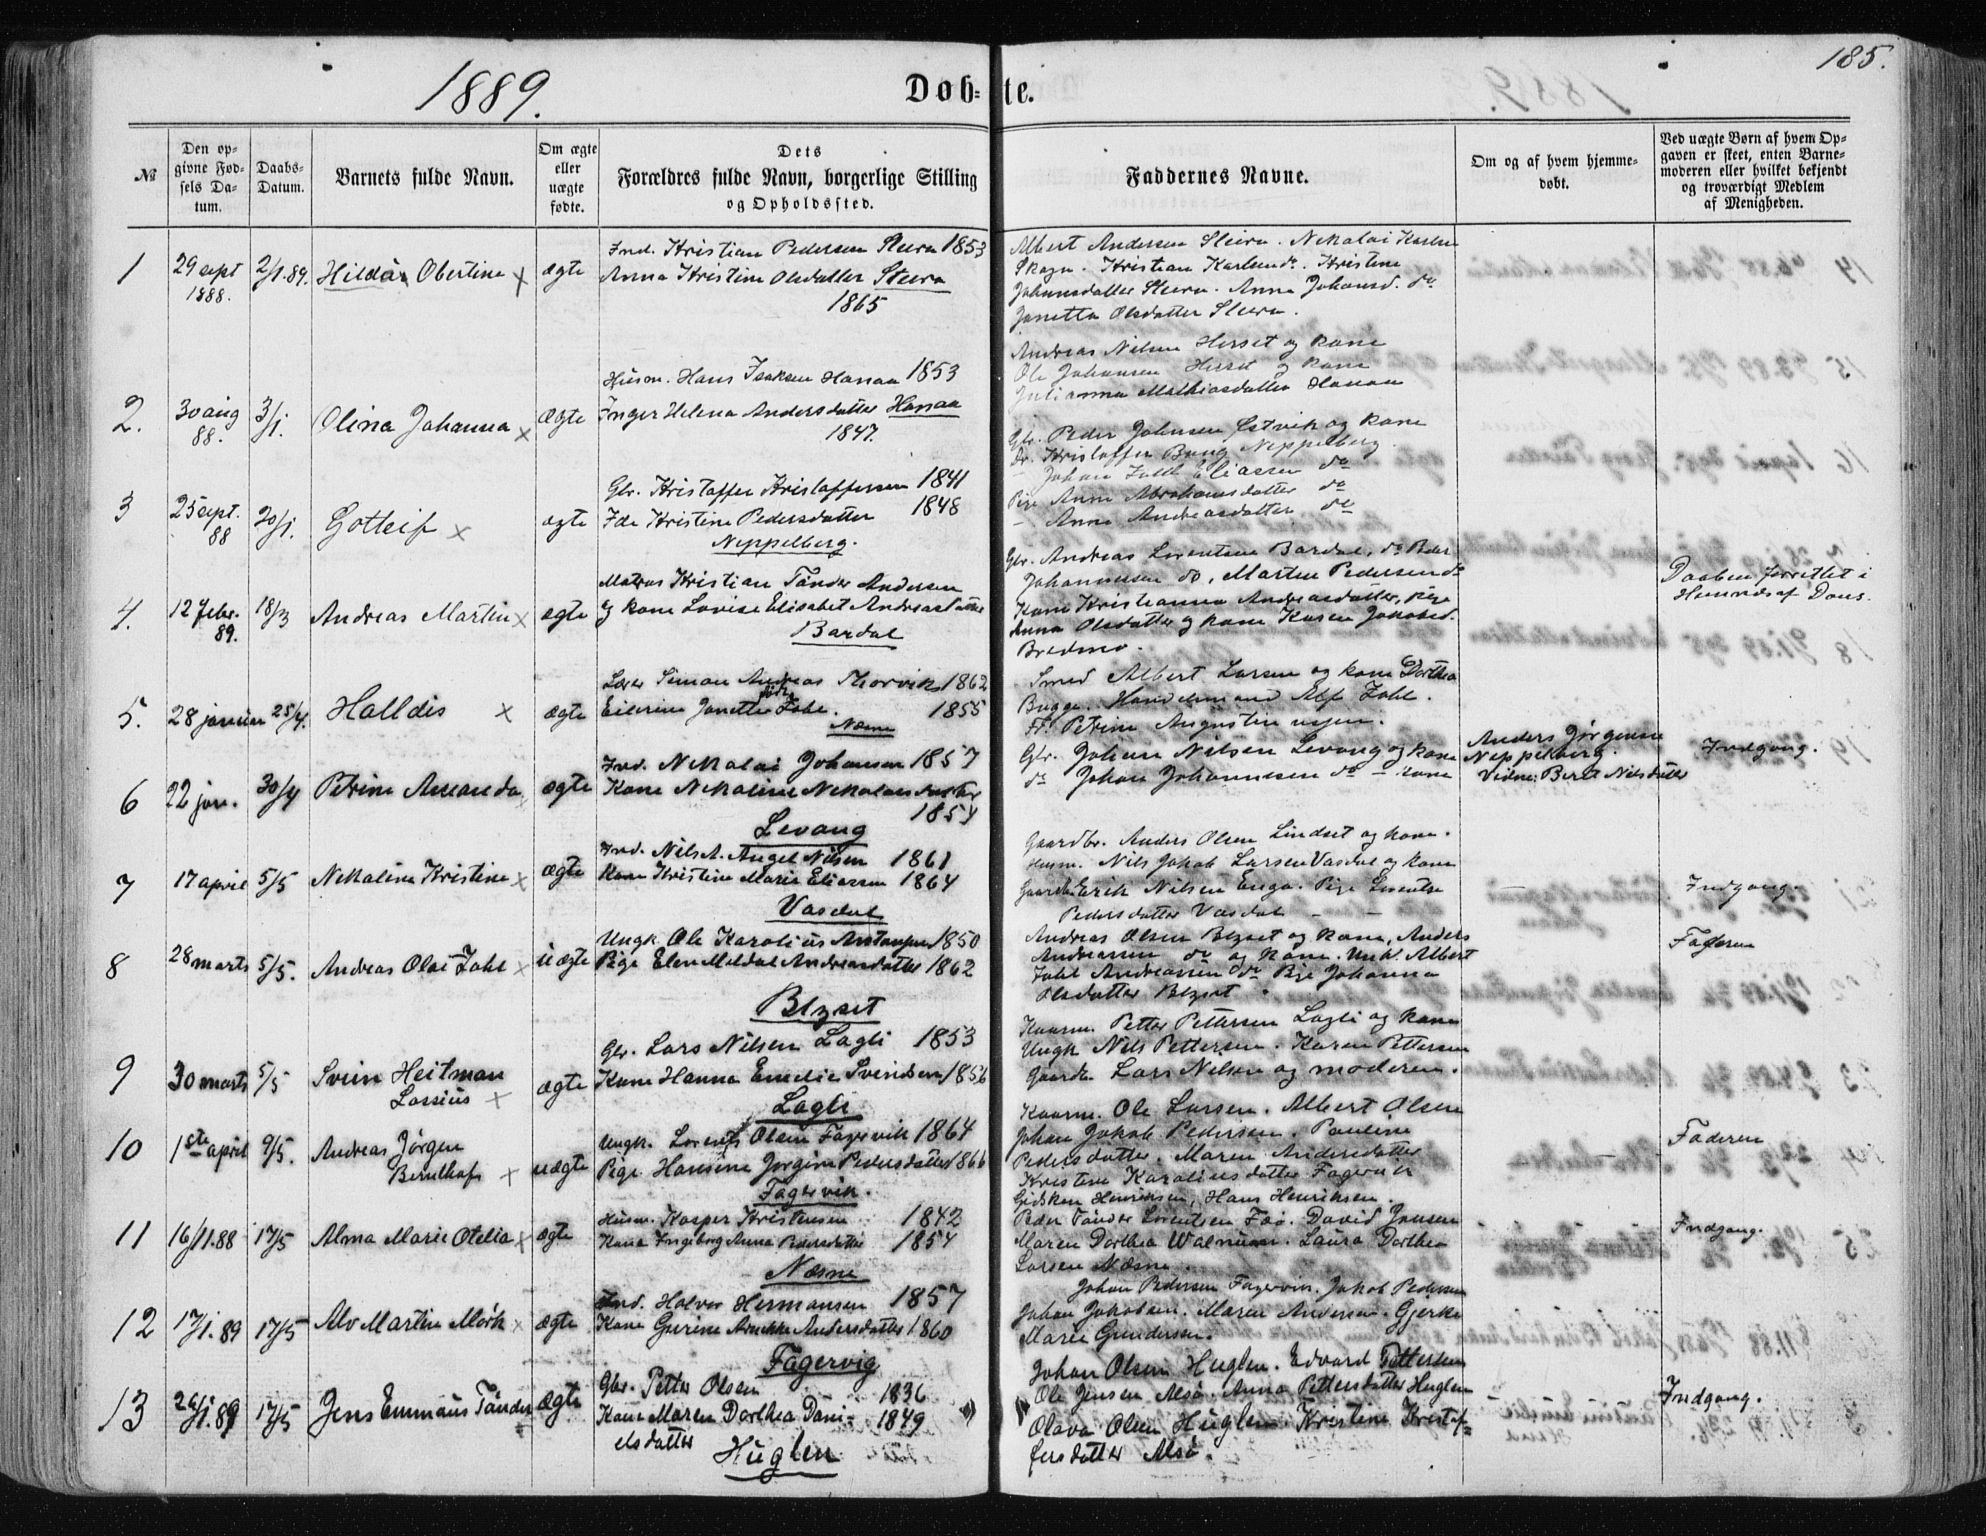 185.
1889.
Døb-te.
№
Den op-
givne Fød-
sels Da-
tum.
Daabs-
Datum.
Barnets fulde Navn.
Om ægte
eller
uægte
fødte.
Dets
Forældres fulde Navn, borgerlige Stilling
og Opholdssted.
Faddernes Navne.
Om og af hvem hjemme-
døbt.
Ved uægte Børn af hvem Op-
gaven er skeet, enten Barne-
moderen eller hvilket bekjendt
og troværdigt Medlem
af Menigheden.
1
29 sept
1888.
2/1.89.
Hilda Obertine
ægte
Ind. Kristian Pedersen Steiro 1853
Anna Kristine Olsdatter Steiro
1865
Albert Andersen Steiro. Nikolai Karlsen
Skogn. Kristian Karlsen do. Kristine
Johannsdatter Steiro. Anna Johansd. do
Janetta Olsdatter Steiro.
2.
30 aug
88.
3/1.
Olina Johanna
Ægte
Husm. Hans Isaksen Hanaa 1853
Inger Helena Andersdatter Hanaa
1847.
Andreas Nilsen Herset og kone
Ole Johansen Herset og kone
Julianna Mathiasdatter Hanaa
3
25 sept.
88
20/1.
Gotleif
ægte
Gbr. Kristoffer Kristoffersen 1841
Ida Kristine Pedersdatter 1848
Neppelberg.
Gbr. Peder Johnsen Østvik og kone
Do. Kristoffer Bang Neppelberg
Johan Zahl Eliassen do
Pige Anne Abrahamsdatter do
- Anna Andreasdatter do
4.
12 febr.
89.
18/3
Andreas Martin
ægte
Matros Kristian Tønder Andersen
og kone Lovise Elisabet Andreasdatter
Bardal
Gbr. Andreas Lorentsen Bardal, do Peder
Johannesen do, Martin Pedersen do
Kone Kristianna Andreasdatter, Pige
Anna Olsdatter og kone Karen Jakobsd.
Bredmo.
Daaben forrettet i
Hemnes af Dons.
5.
28 januar
25/4.
Halldis
ægte
Lærer Simon Andreas Thorvik 1862
Eilerine Janette født Zahl. 1855
Næsne
Smed Albert Larsen og kone Dorthea
Bugge. Handelsmand Alf Zahl.
Fr. Petrine Augustinussen.
6
22 jan.
30/4
Petrine Amanda
ægte
Ind. Nekolai Johansen 1857
Kone Nekoline Nekolaisdatter
1854
Levang
Gbr. Johan Nilsen Levang og kone
do Johan Johannesen do - kone
Anders Jørgensen
Neppelberg.
Vidne: Beret Nilsdatter
Indgang.
7
17 april
5/5
Nekoline Kristine
ægte
Ind. Nils A. Angel Nilsen 1861
Kone Kristine Marie Eliassen 1864
Vasdal
Gaardbr. Anders Olsen Lindset og kone.
Husm. Nils Jakob Larsen Vasdal og kone
Gaardbr. Erik Nilsen Enga. Pige Lorentse
Pedersdatter Vasdal
Indgang.
8
28 marts
5/5.
Andreas Olai Zahl
uægte
Ungk. Ole Karolius Antonsen 1850
Pige Elen Meldal Andreasdatter 1862
Blzset
Andreas Olsen Blzset og kone, Anders
Andreassen do og kone. Unk. Albert
Zahl Andreassen do. Pige Johanna
Olsdatter Blzset.
Faderen
9
30 marts
5/5
Svein Heitman
Lassius
ægte
Gbr. Lars Nilsen Lagli 1853
Kone Hanna Emelie Svendsen 1856
Lagli
Kaarm. Petter Pettersen Lagli og kone
Ungk Nils Pettersen. Karen Pettersen
Gaardbr. Lars Nilsen og moderen.
10
1ste april
9/5.
Andreas Jørgen
Bernthof
uægte
Ungk. Lorents Olsen Fagervik 1864
Pige Hansine Jørgine Pedersdatter 1866
Fagervik.
Kaarm. Ole Larsen. Albert Olsen
Johan Jakob Pedersen. Pauline
Pedersdatter. Maren Andersdatter
Kristine Karoliusdatter Fagervik
Faderen
11
16/11.88
17/5
Alma Marie Otelia
ægte
Husm. Kasper Kristensen 1842
Kone Ingeborg Anna Pedersdatter 1854
Næsne
Gidsken Henriksen, Hans Henriksen.
Peder Tønder Lorentsen Zoo. David Jensen
Maren Dorthea Walnum. Laura Dorthea
Larsen Næsne.
Indgang.
12
17/1.89
17/5
Alv Martin Mørk
ægte
Ind. Halvor Hermansen 1857
Kone Gurine Arntekke Andersdatter 1860
Fagervig
Johan Pedersen Fagervik. Jakob Pedersen
Johan Jakobsen. Maren Andersen. Gjerke
Marie Gundersen.
13
26/1.89
17/5
Jens Emmaus Tønder
ægte
Gbr. Petter Olsen 1836
Kone Maren Dorthea Dani- 1849
elsdatter
Huglen
Johan Olsen Huglen. Edvard Pettersen
Ole Jensen Alsø. Anna Pettersdatter Huglen
Olava Olsen Huglen. Kristine Kristof-
fersdatter Alsø.
Indgang.